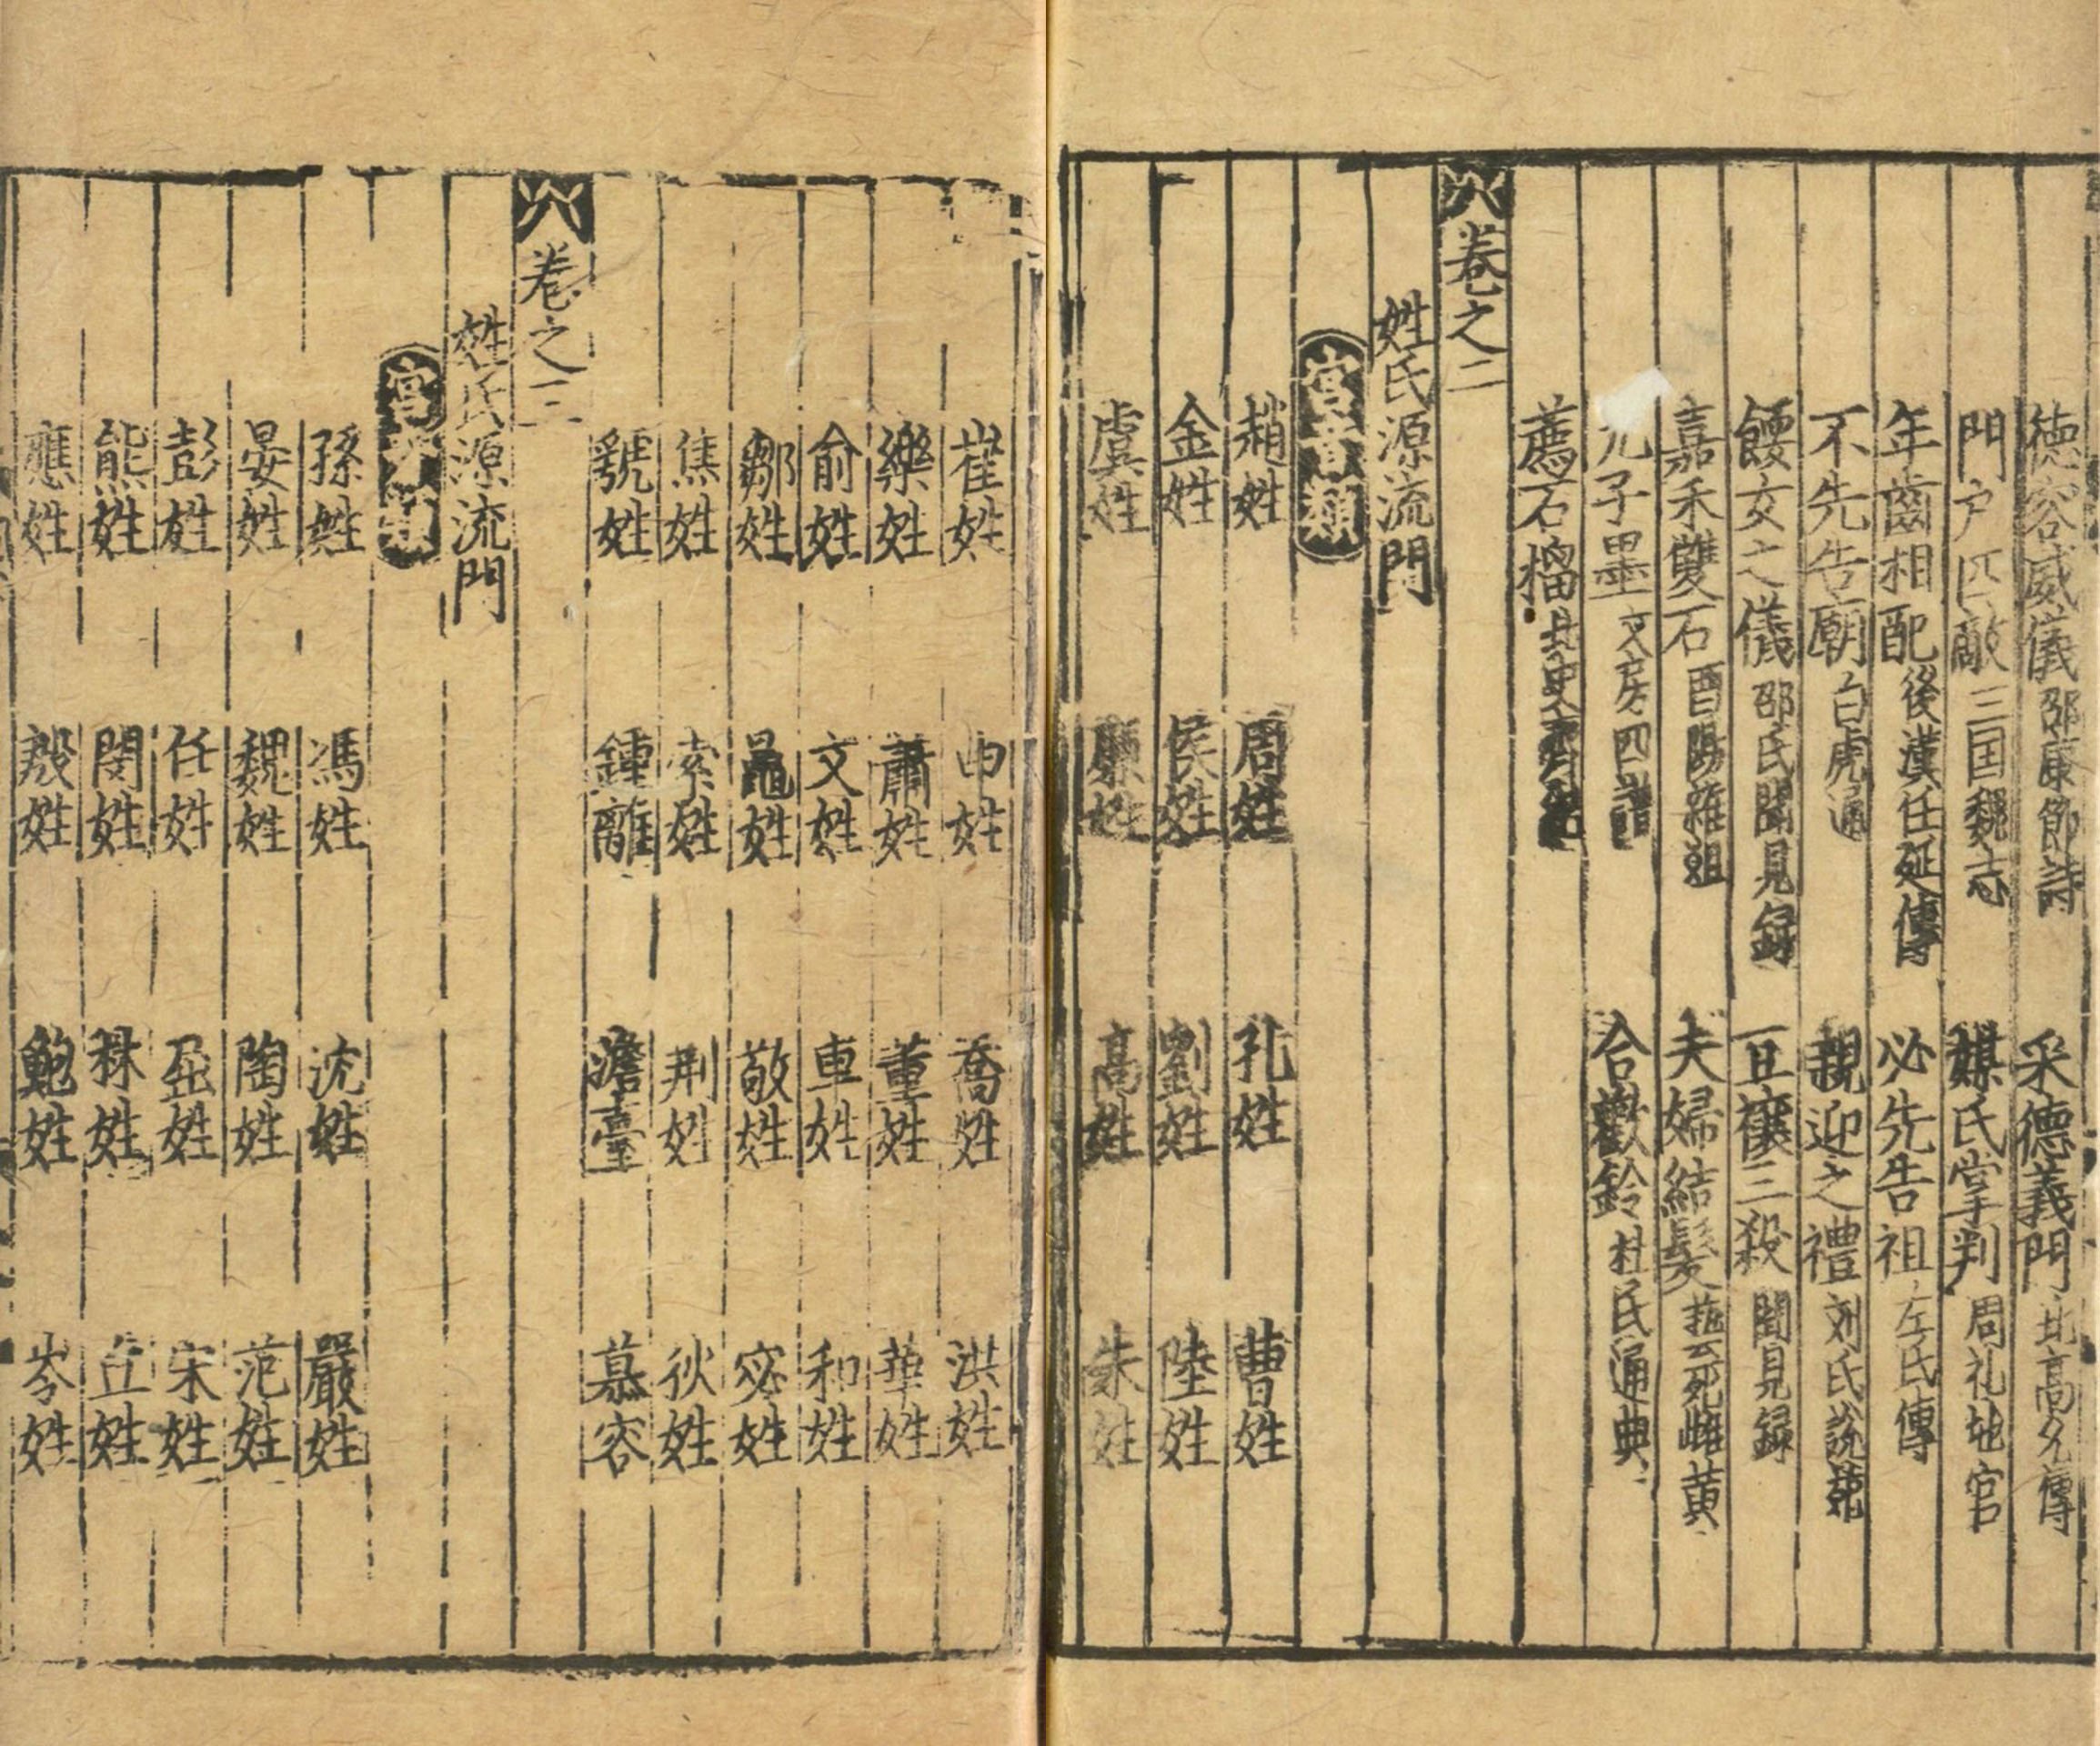 德容威儀 邵康節詩 采德義門 北高允傳
門户匹敵 三国魏志 媒氏掌判 周礼地官
年齒相配 後漢任延傳 必先告祖 左氏傳
不先告廟 白虎通 親迎之禮 刘氏説苑
餪女之儀 邵氏聞見録 一旦禳三殺 聞見録
嘉禾雙石 酉陽雜俎 夫婦結髪 雌黄
九子墨 文房四譜 合歡鈴 杜氏通典
薦石榴 北史
卷之二
姓氏源流門
宫音類
趙姓 周姓 孔姓 曹姓
金姓 侯姓 劉姓 陸姓
虞姓 姓 高姓 朱姓
崔姓 申姓 喬姓 洪姓
樂姓 蕭姓 董姓 華姓
俞姓 文姓 車姓 和姓
鄒姓 姓 敬姓 宓姓
焦姓 索姓 荆姓 狄姓
號姓 鍾離 澹臺 慕容
卷之三
姓氏源流門
宫
孫姓 馮姓 沈姓 嚴姓
晏姓 魏姓 陶姓 范姓
彭姓 任姓 巫姓 宋姓
熊姓 閔姓 姓 丘姓
應姓 殷姓 鮑姓 岑姓